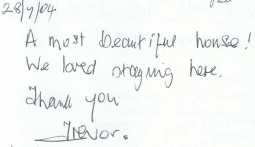 28/7/04
A most beautiful house!
We loved staying here.
Thank you
Trevor.